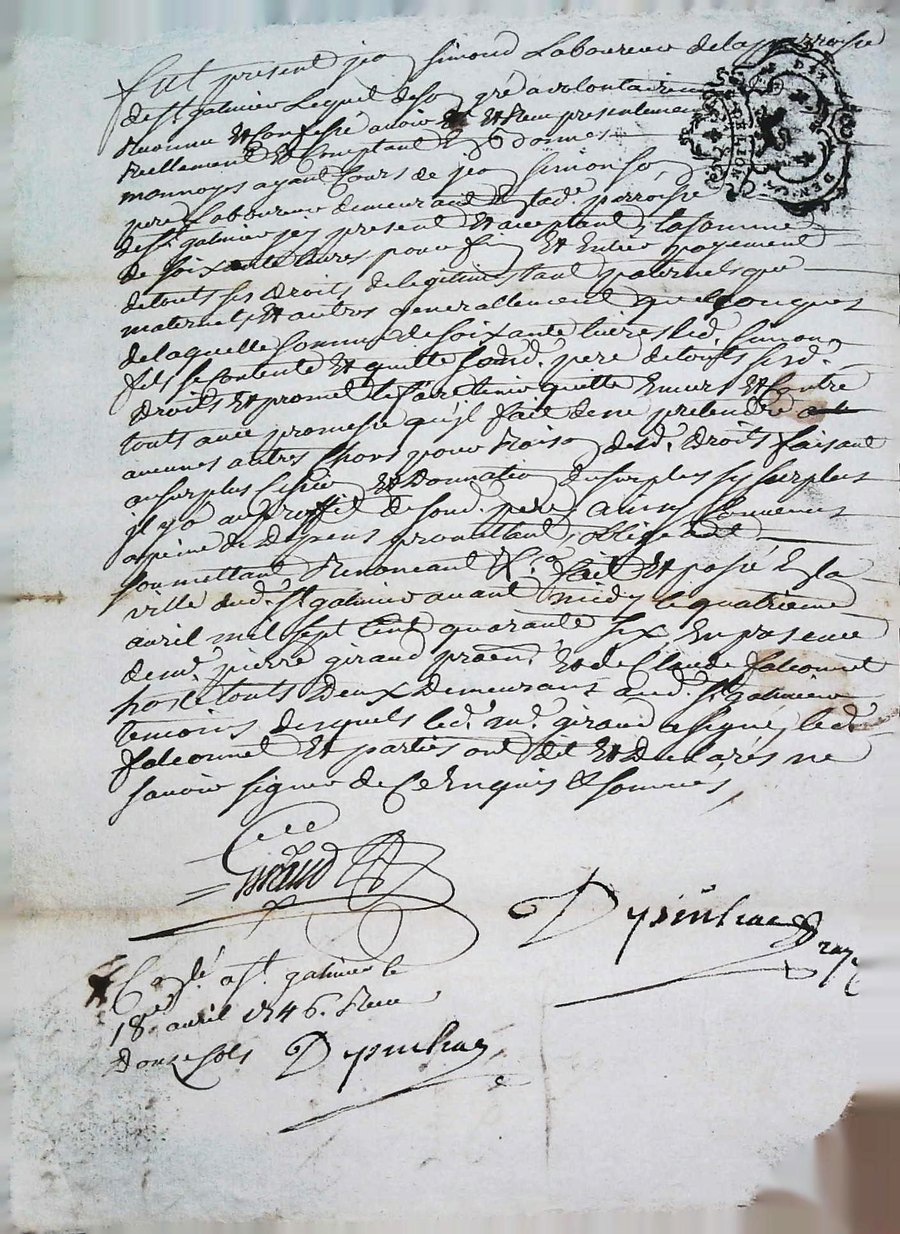 fut présent jea simond Laboureur de la parroisse
de st galmier Lequel de so gré a volontairem
Reconnu et Confessé avoir et Receu presentement
Reellement et Comptant
monnoyes ayant Cours de jea simon so
pere Laboureur demeurant lad.e parroisse
de st galmier jcy present et acceptant la somme
de soixante livres pour fin et Entier payement
de touts ses Droits de legitimes tant paternels que
maternels et autres generallement quelconques
de laquelle somme de soixante livres led. simon
fils se Contente et quitte sond. pere de touts sesd.
Droits et promet le faire tenir quitte Envers et Contre
touts avec promesse qu'yl fait de ne pretendre
aucunes autres Choses pour Raison desd. Droits faisant
au surplus Cession et Donnation du surplus sy surplus
il y a au proffit de sond. pere ainsy Convenus
a peine de Depens promettant obligeant
soumettant Renonceant &a fait et passé En la
ville dud. st galmier avant midy le quatrieme
avril mil sept Cent quarante six En presence
de mr. pierre giraud et de Claude falconnet
hoste touts Deux Demeurants aud. st galmier
temoins desquels led. mr. giraud a signé, led.
falconnet Et parties ont dit et Declarés ne
savoir signer de Ce Enquis & sommés,
Giraud
Dypinhac
DIT
Con.lé a st. galmier le
18e avril 1746. Receu
Douze sols Dypinhac